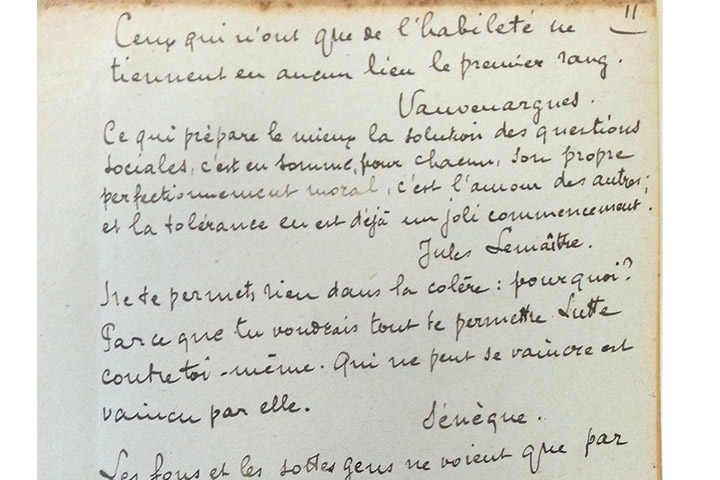 11
Ceux qui n'ont que de l'habileté ne
tiennent en aucun lieu le premier rang.
Vauvenargues.
Ce qui prépare le mieux la solution des questions
sociales, c'est en somme, pour chacun, son propre
perfectionnement moral, c'est l'amour des autres;
et la tolérance en est déjà un joli commencement.
Jules Lemaître.
Ne te permets rien dans la colère : pourquoi?
Parce que tu voudrais tout te permettre. Lutte
contre toi-même. Qui ne peut se vaincre est
vaincu par elle.
Sénèque.
Les fous et les sottes gens ne voient que par